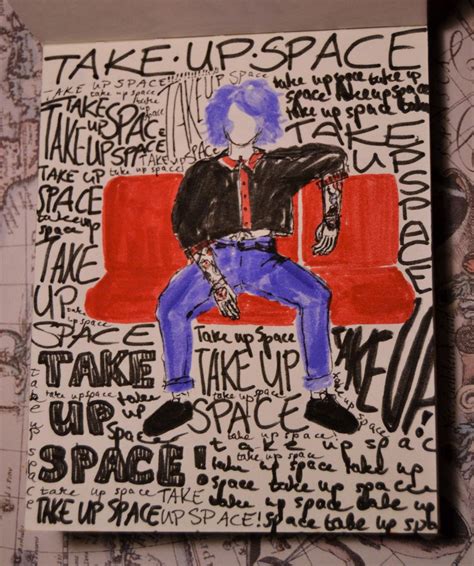 TAKE·UP·SPACE
TAKE UP SPACE!
take up space
TAKE UP SPACE
take up space take up
space take up space
take up space take up
TAKE
UP
SPACE
TAKE
UP SPACE
TAKE UP
SPACE
TAKE UP
SPACE
take up
space
take up space!
TAKE
UP
SPACE
take up space
TAKE
UP
SPACE!
take up space
take up
space
take up space
Take up Space
TAKE UP
SPACE
take up space
TAKE UP!
take up space
take up space
take up space!
take up space take up
space take up space
take up space take up
space take up space
take up space TAKE
TAKE UP SPACE UP SPACE!
take up space take up
space take up space